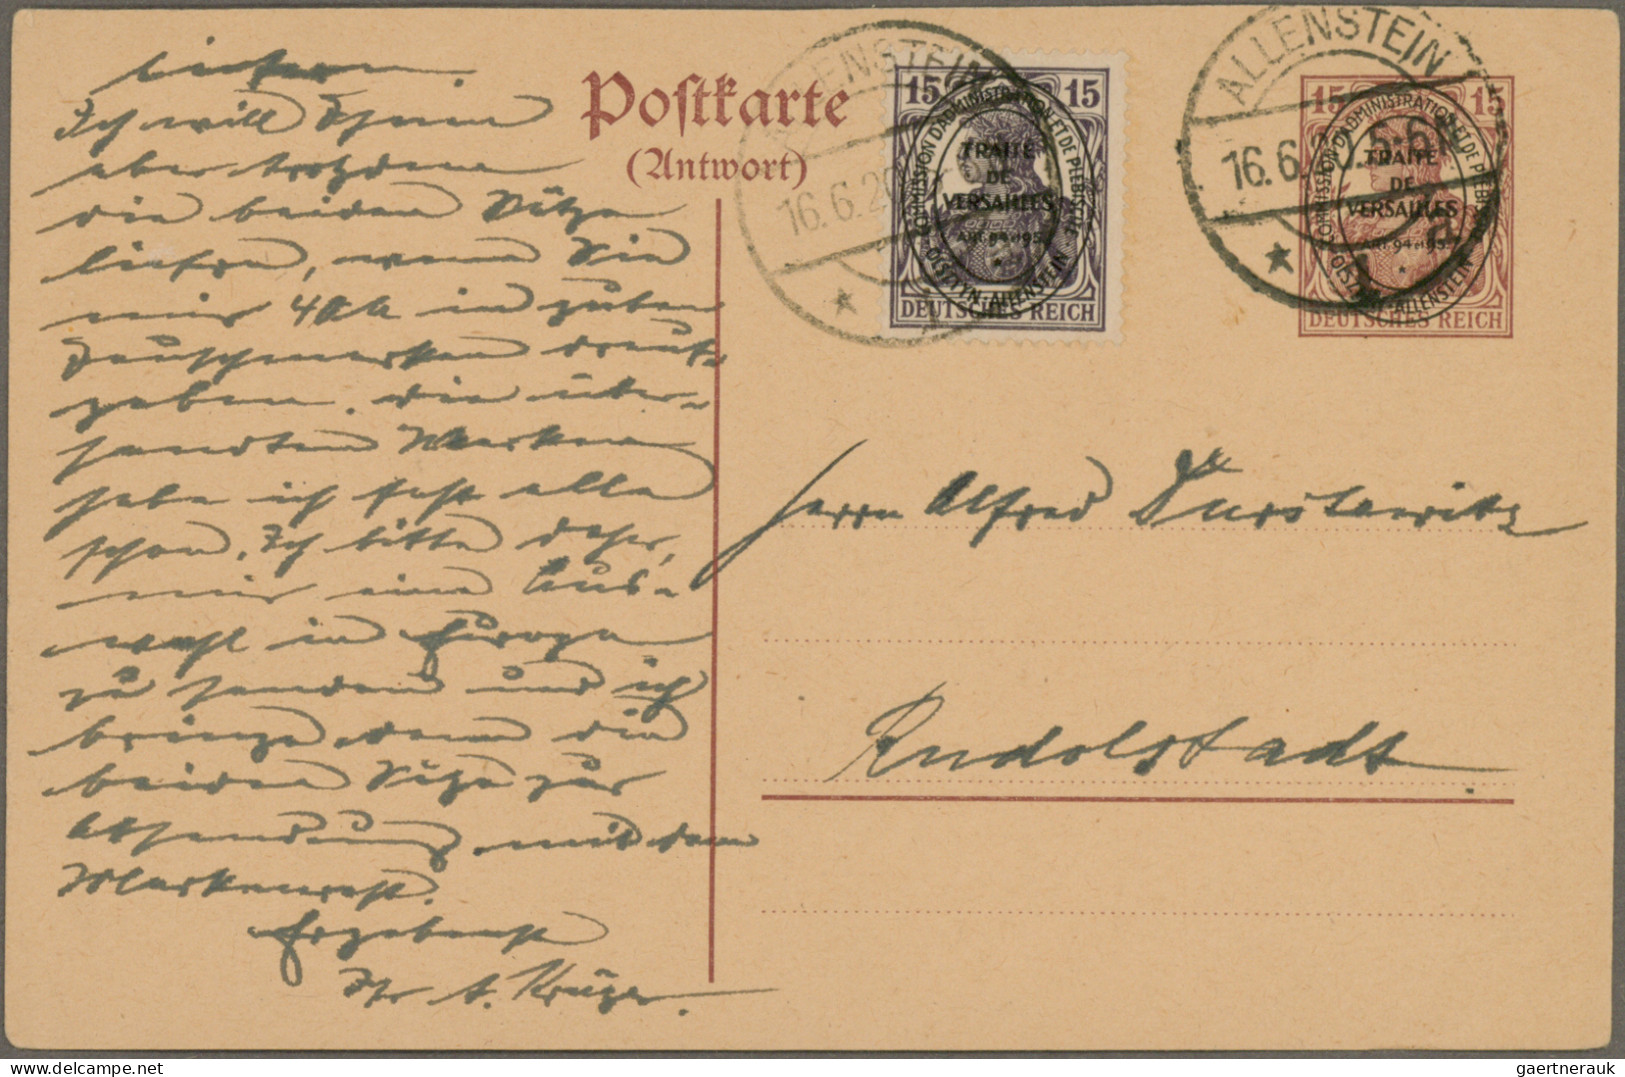 liefern.
Ich will Ihnen
aber trotzdem
die beiden Sätze
liefern, wenn Sie
mir 40 M in guten
Tauschmarken drauf-
geben. Die über-
sandten Marken
habe ich fast alle
schon. Ich bitte daher,
mir eine Aus-
wahl in Europa
zu senden und ich
bringe dann die
beiden Sätze zur
Absendung mit dem
Markenrest.
Ergebenst
Ihr A. Krüger.
Postkarte
(Antwort)
ALLENSTEIN
16.6.20
15 15
COMMISSION D'ADMINISTRATION ET DE PLEBISCITE
TRAITÉ
DE
VERSAILLES
ART. 94 et 95
OLSZTYN ALLENSTEIN
DEUTSCHES REICH
ALLENSTEIN 1
16.6.20. 5-6N
a
15 15
COMMISSION D'ADMINISTRATION ET DE PLEBISCITE
TRAITÉ
DE
VERSAILLES
ART. 94 et 95
OLSZTYN ALLENSTEIN
DEUTSCHES REICH
Herrn Alfred
Rudolstadt
gaertnerauk